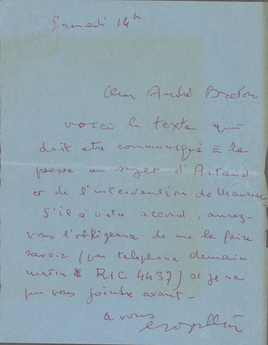 Samedi 14h
Cher André Breton
voici le texte qui
doit etre communiqué à la
presse au sujet d'Artaud
et de l'intervention de Mauriac
S'il a votre accord, aurez-
vous l'obligeance de me le faire
savoir (par telephone demain
matin RIC 4437) si je n'ai
pu vous joindre avant -
a vous